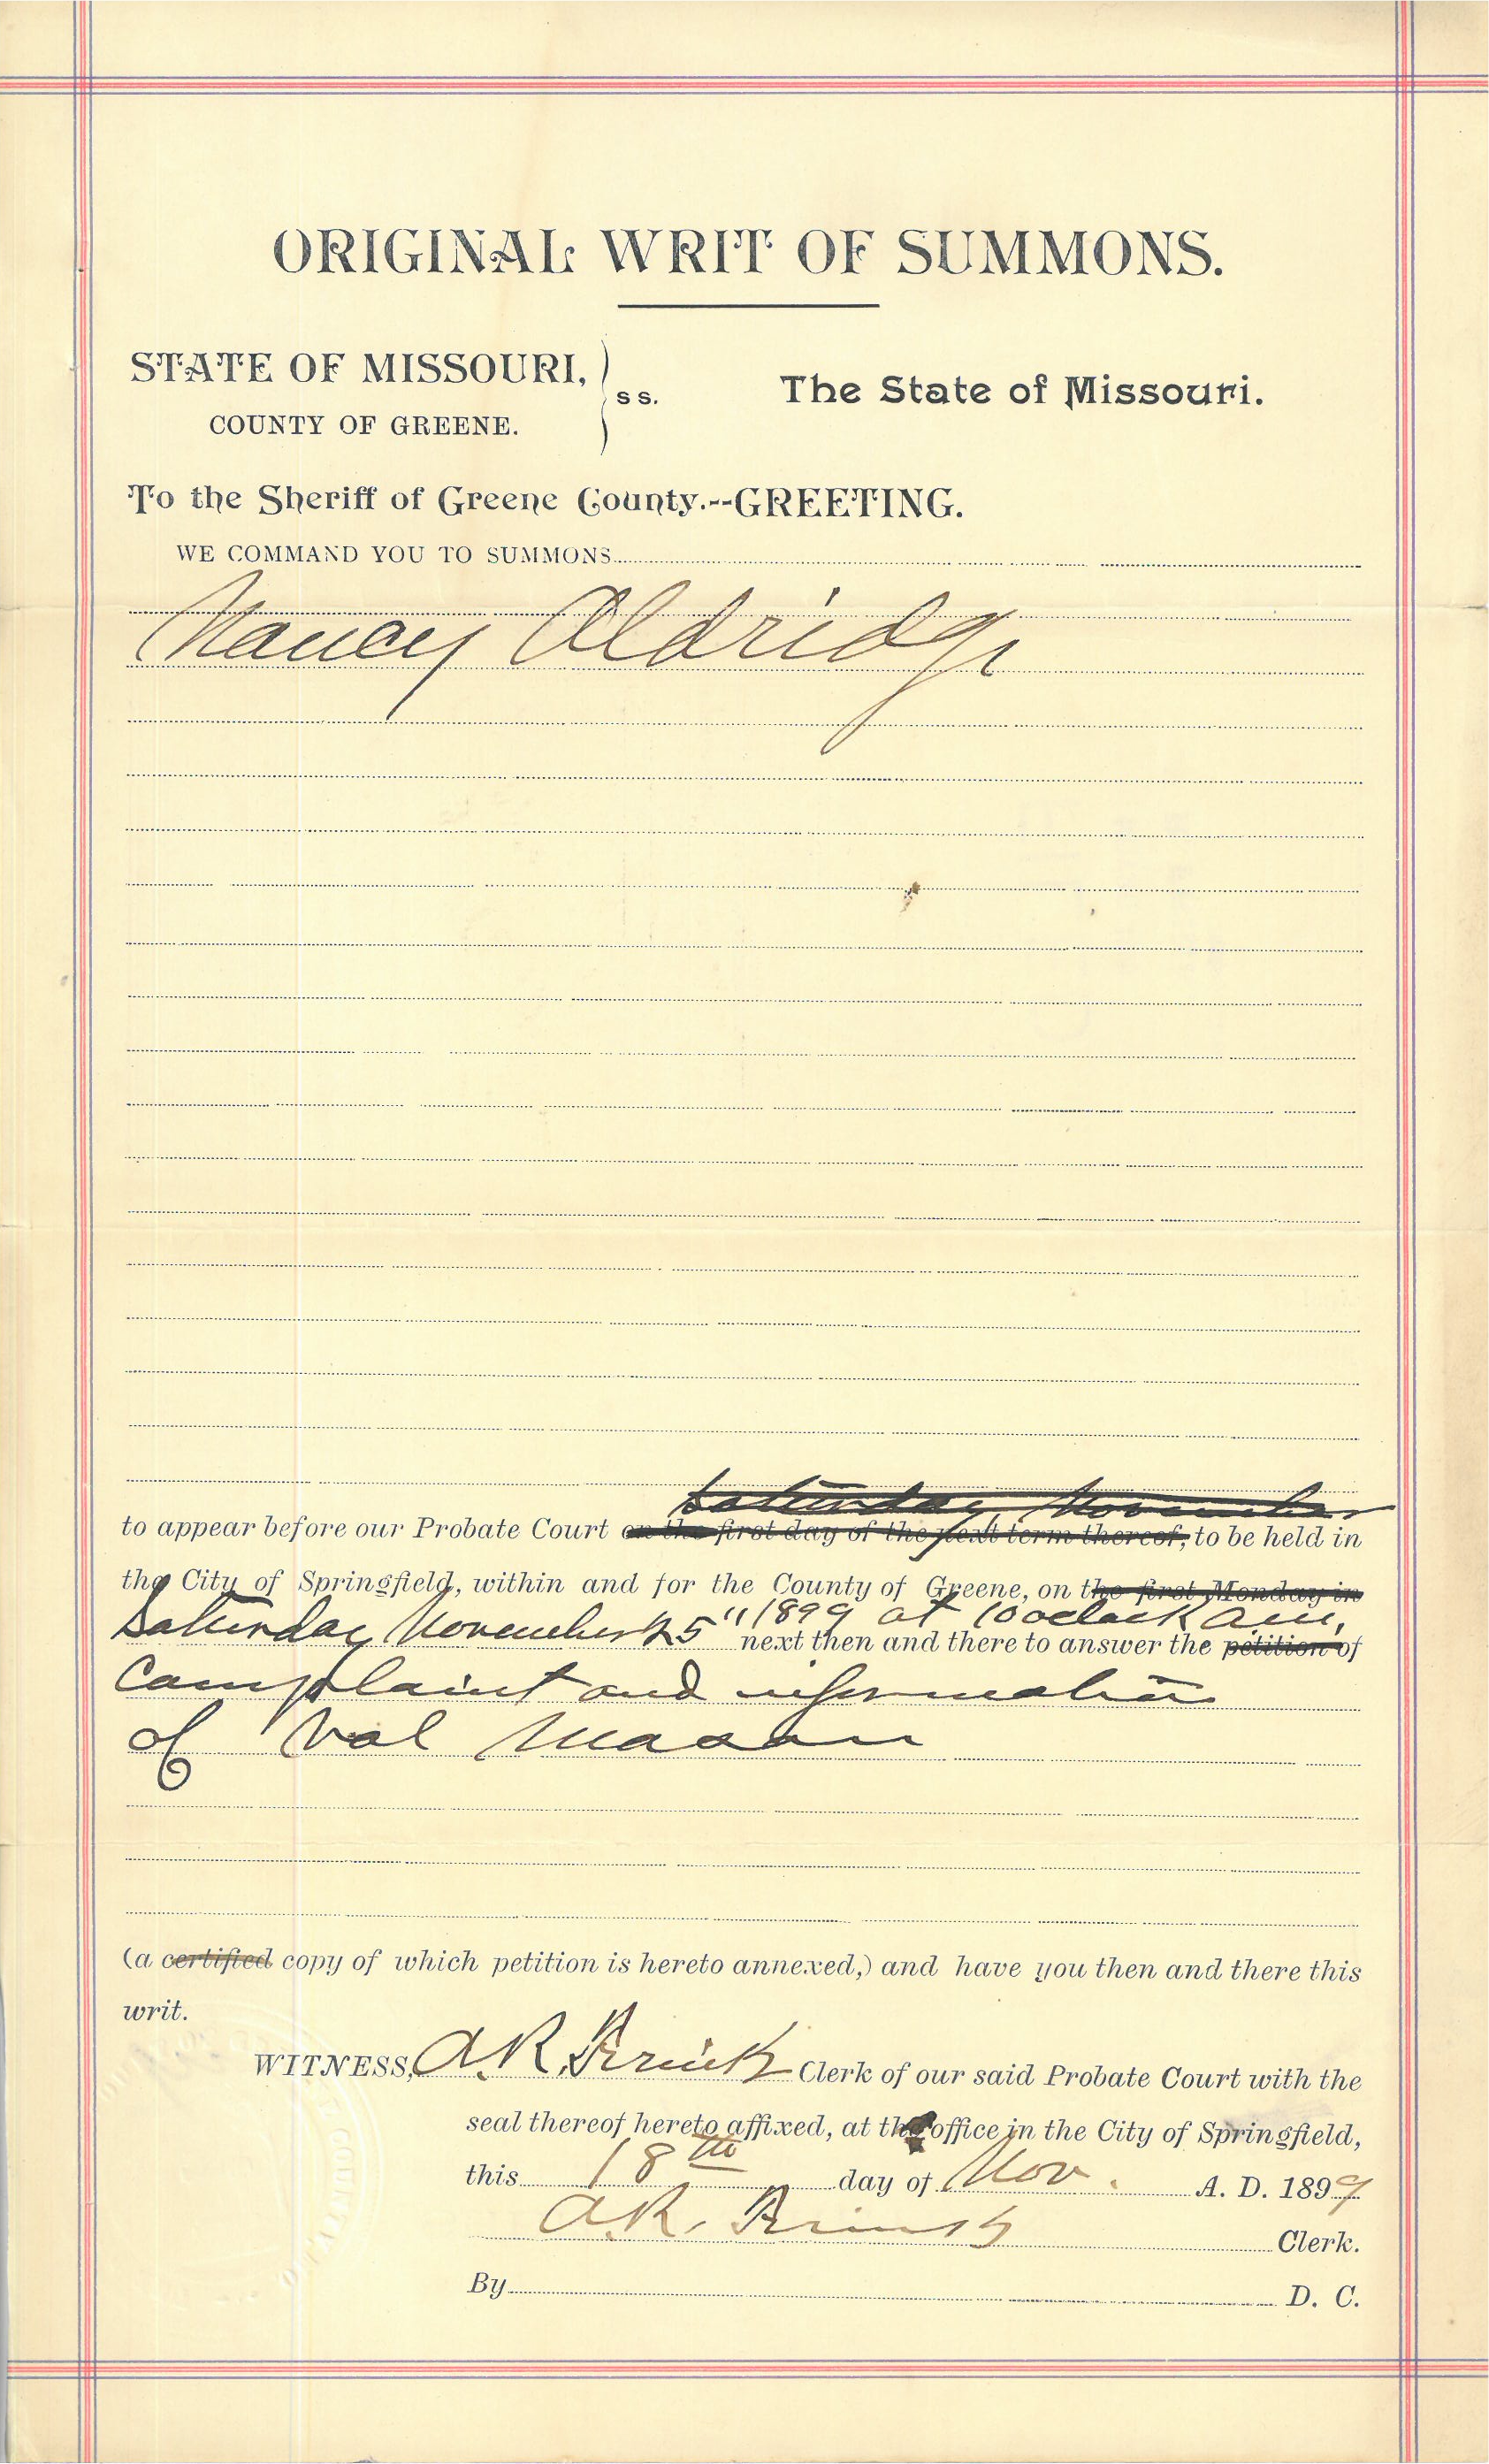 ORIGINAL WRIT OF SUMMONS.
STATE OF MISSOURI,
COUNTY OF GREENE.
ss.
The State of Missouri.
To the Sheriff of Greene County.--GREETING.
WE COMMAND YOU TO SUMMONS
Nancy Aldridge
Saturday, November
to appear before our Probate Court on the first day of the next term thereof, to be held in
the City of Springfield, within and for the County of Greene, on the first Monday in
Saturday November 25" 1899 at 10 oclock a.m,
next then and there to answer the petition of
Complaint and information
of Val Mason
(a certified copy of which petition is hereto annexed,) and have you then and there this
writ.
WITNESS, A.R. Clerk of our said Probate Court with the
seal thereof hereto affixed, at the office in the City of Springfield,
this 18th day of Nov. A. D. 1899
A.R. Clerk.
By D. C.